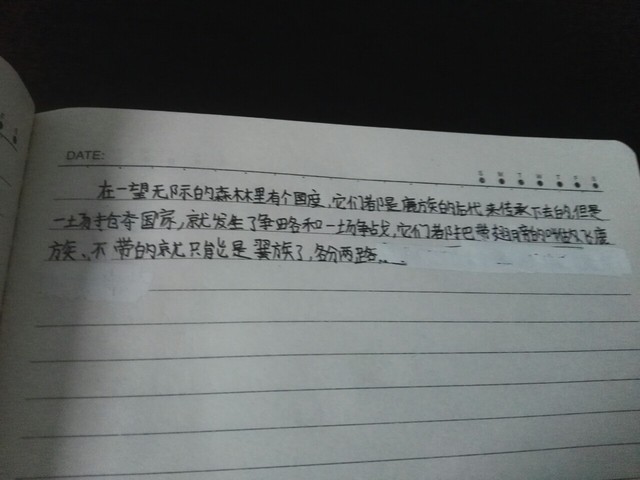 DATE:
S M T W T F S
在一望无际的森林里有个国度,它们都是鹿族的后代来传承下去的,但是
一场抢夺国家,就发生了争吵和一场争战,它们都把带翅膀的叫做飞鹿
族..不带的就只能是翼族了,各分两路..